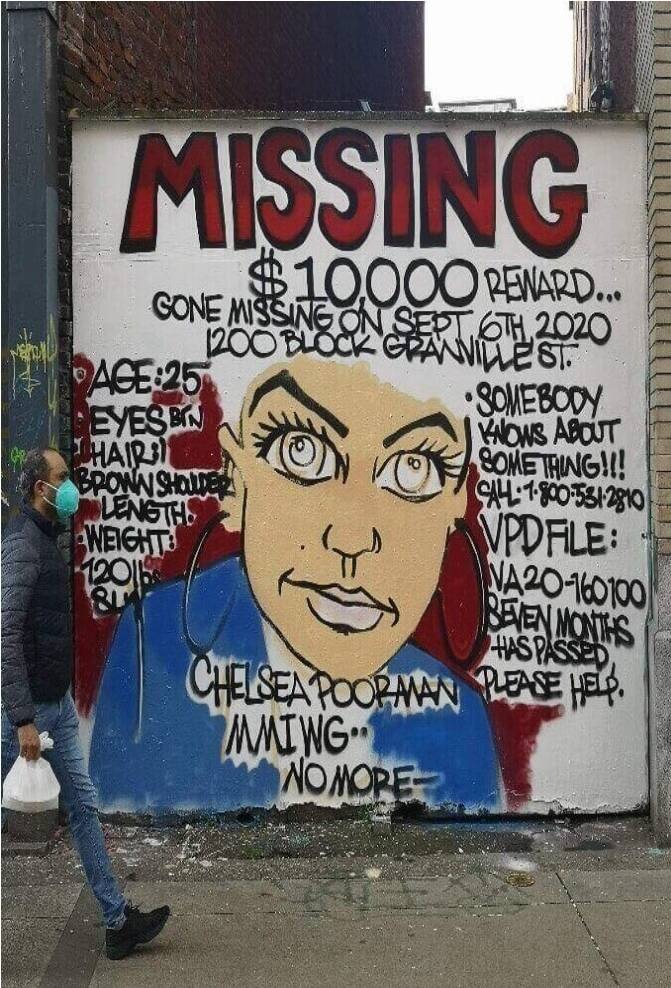 MISSING
$10,000 REWARD...
GONE MISSING ON SEPT 6TH, 2020
1200 BLOCK GRANVILLE ST.
AGE:25
EYES BRN
HAIR:
BROWN SHOULDER
LENGTH.
WEIGHT:
120lbs
• SOMEBODY
KNOWS ABOUT
SOMETHING!!!
CALL: 1-800-531-2810
VPD FILE:
VA20-160100
SEVEN MONTHS
HAS PASSED
PLEASE HELP.
CHELSEA POORMAN
MMIWG..
NO MORE-